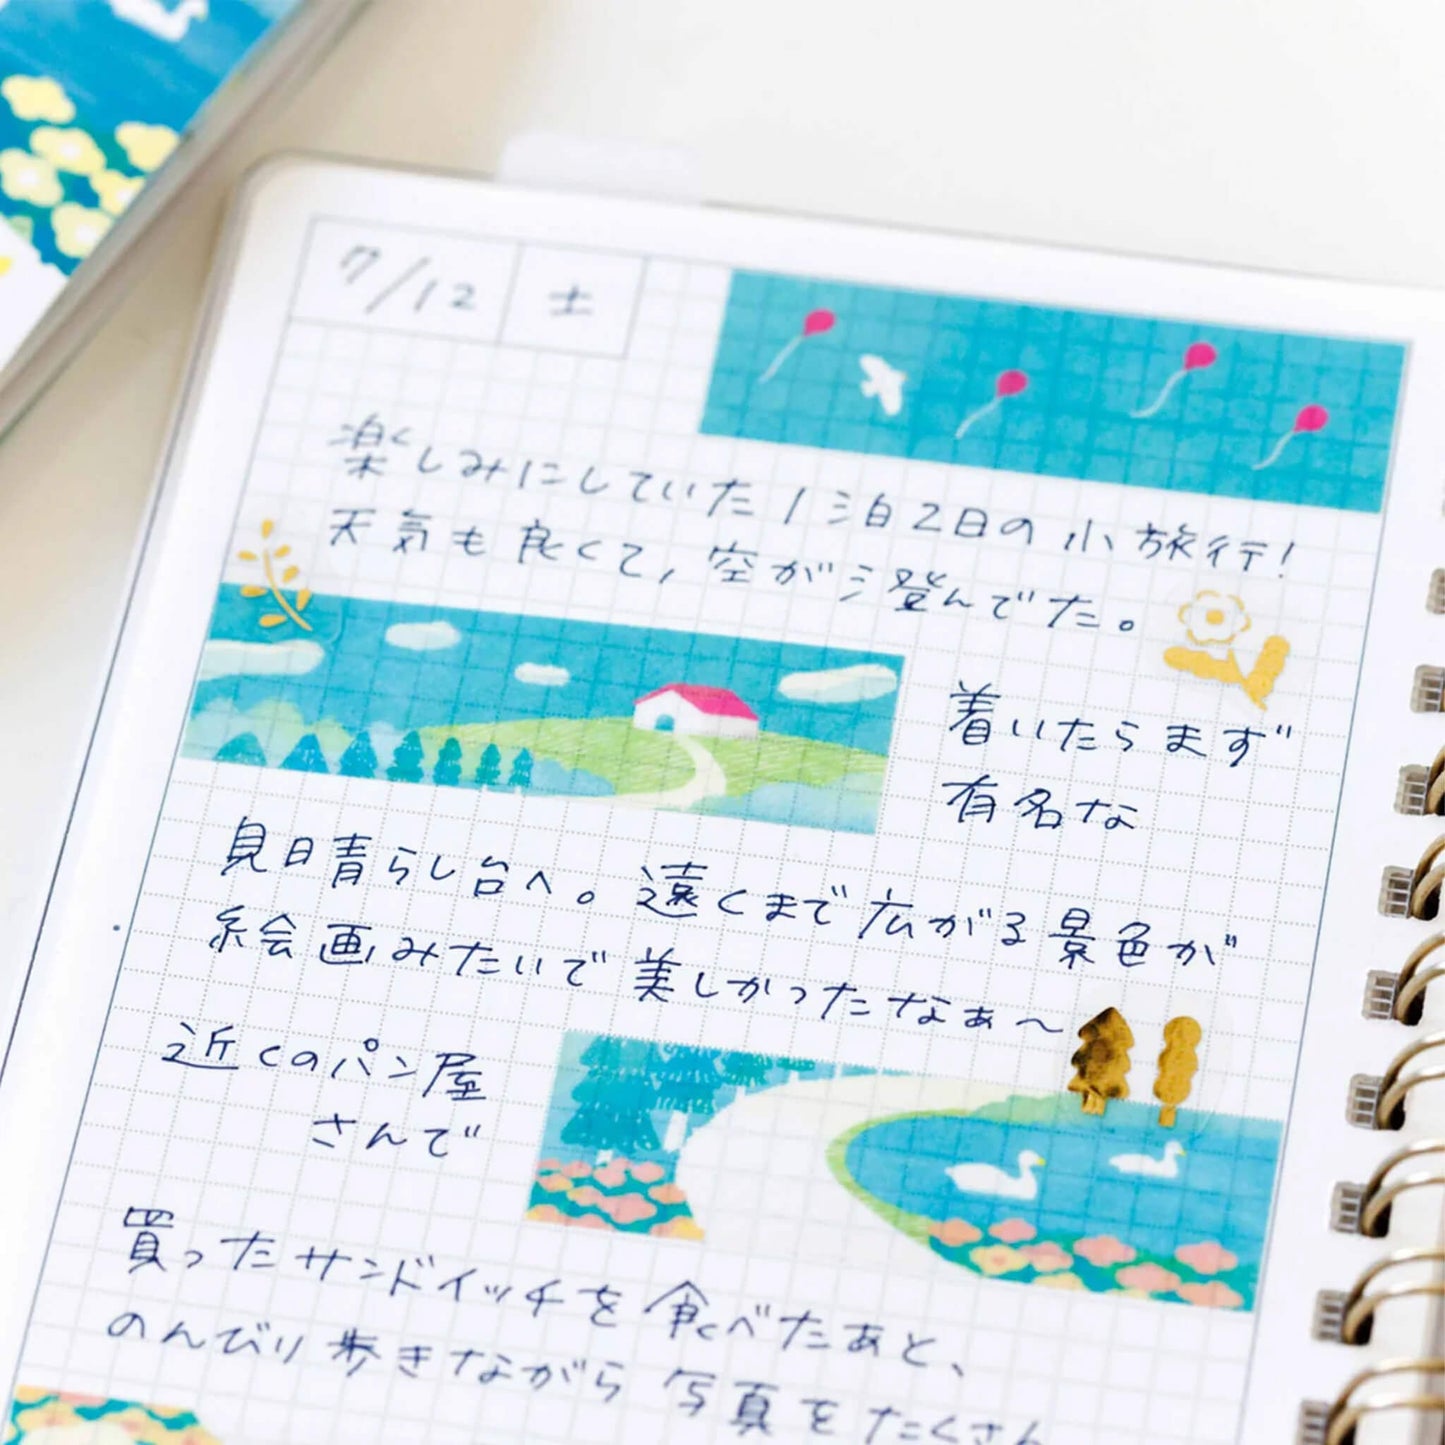 7/12 土
楽しみにしていた1泊2日の小旅行!
天気も良くて,空が澄んでた。
着いたらまず
有名な
見晴らし台へ。遠くまで広がる景色が
絵画みたいで美しかったなぁ〜
近くのパン屋
さんで
買ったサンドイッチを食べたあと、
のんびり歩きながら写真をたくさん